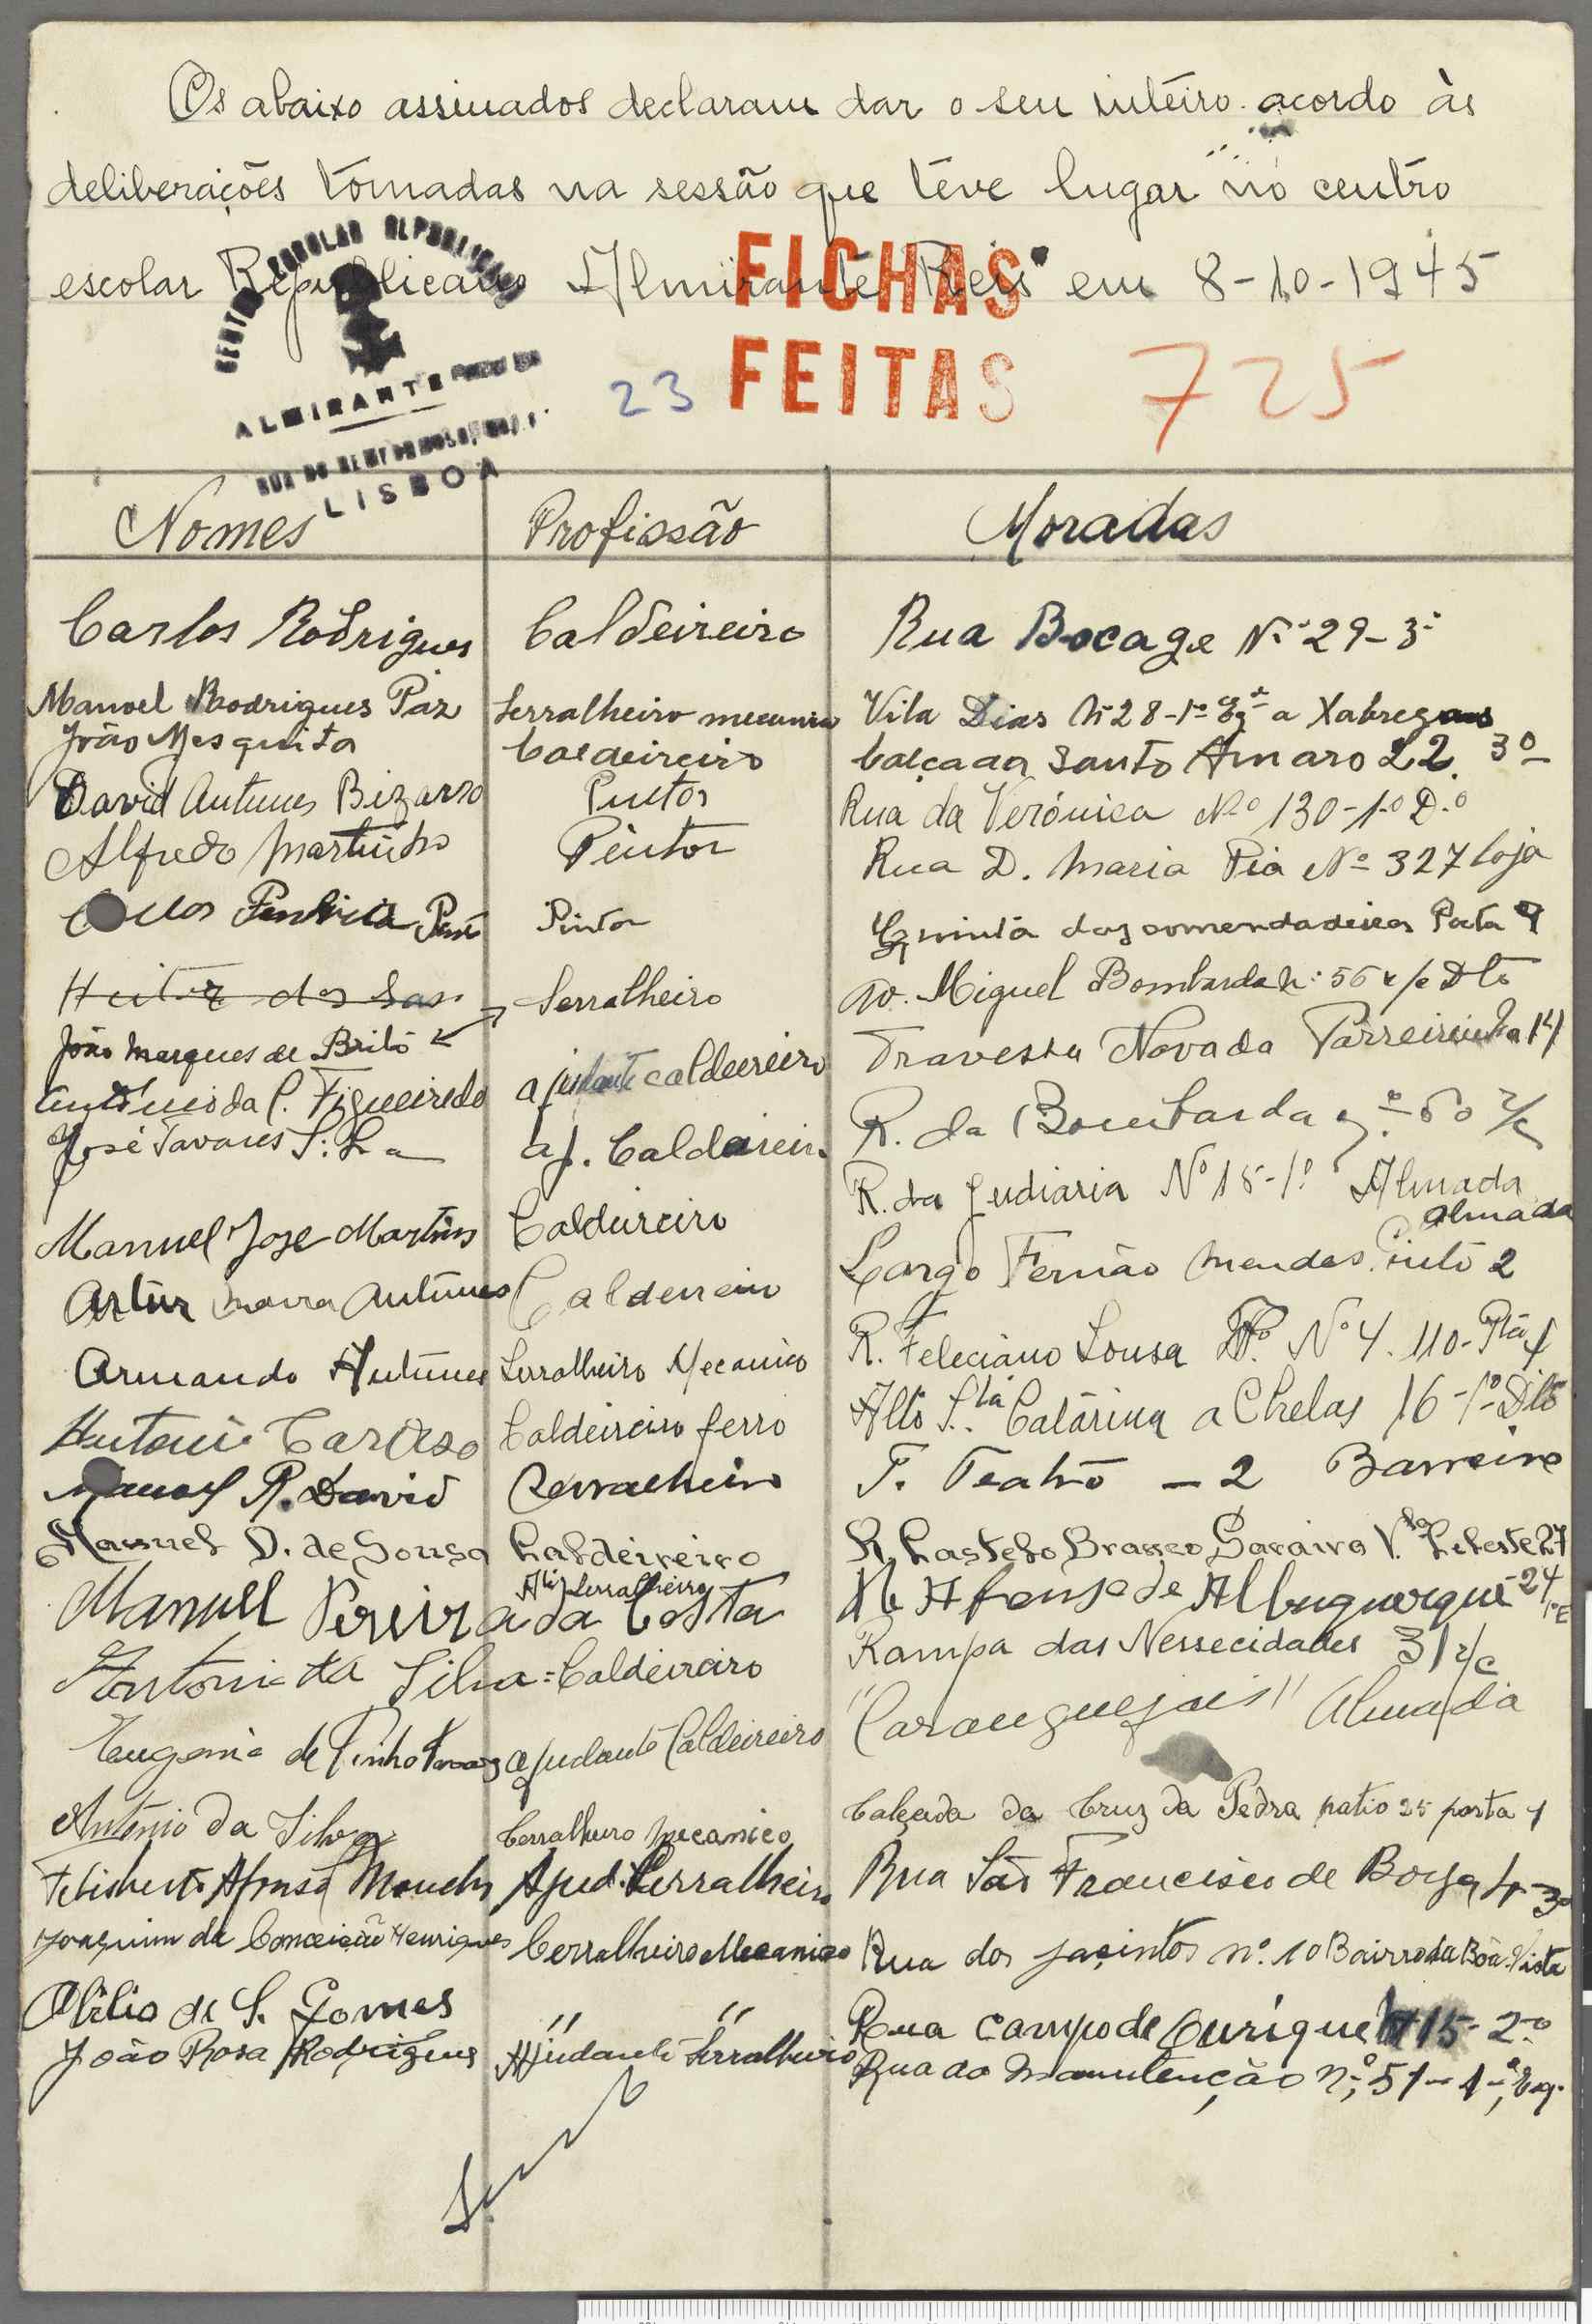 Os abaixo assinados declaram dar o seu inteiro acordo às
deliberações tomadas na sessão que teve lugar no centro
escolar Republicano Almirante Reis em 8-10-1945
CENTRO ESCOLAR REPUBLICANO
ALMIRANTE
LISBOA
FICHAS
FEITAS
23
725
Nomes Profissão Moradas
Carlos Rodrigues Caldeireiro Rua Bocage Nº 29-3º
Manoel Rodrigues Paz Serralheiro mecanico Vila Dias Nº 28-1º Eqº a Xabregas
João Mesquita Caldeireiro Calçada Santo Amaro 22. 3º
David Antunes Bizarro Pintor Rua da Verónica Nº 130-1º D.º
Alfredo Martinho Pintor Rua D. Maria Pia Nº 327 loja
Pintor Quinta das comendadeiras Porta 9
Heitor dos Serralheiro Av. Miguel Bombarda n: 56 r/c Dtº
João Marques de Brito
Travessa Nova da Parreirinha 14
António da C. Figueiredo ajudante caldeireiro
José Tavares aj. Caldeireiro R. da Bombarda nº 60 r/c
R. da Judiaria Nº 15-1º Almada
Manuel José Martins Caldeireiro Almada
Largo Fernão Mendes Pinto 2
Artur Antunes Caldeireiro
R. Feleciano Sousa Nº 4. 110-Ptª 4
Armando Antunes Serralheiro Mecanico
Alto S.ta Catarina a Chelas 16-1º Dtº
António Cardoso Caldeireiro ferro
T. Teatro - 2 Barreiro
Manoel R. David Serralheiro
Manuel D. de Sousa Caldeireiro R. Castelo Branco Saraiva V.la Celeste 27
Serralheiro
Manuel Pereira da Costa R Afonso de Albuquerque-24 1º E
Rampa das Nessecidades 31 r/c
Antonio da Silva = Caldeireiro
"Caranguejais" Almada
Eugénio de Pinho ajudante Caldeireiro
Calçada da Cruz da Pedra patio 25 porta 4
António da Silva Cerralheiro mecanico
Felisberto Afonso Ajud. Serralheiro Rua São Francisco de Borja 4-3º
Joaquim da Conceição Henriques Cerralheiro Mecanico Rua dos jacintos nº. 10 Bairro da Boa-Vista
Abílio de S. Gomes " " Rua Campo de Ourique 115-2º
João Rosa Rodrigues Ajudante Serralheiro Rua da Manutenção nº, 51-1º, Eq.